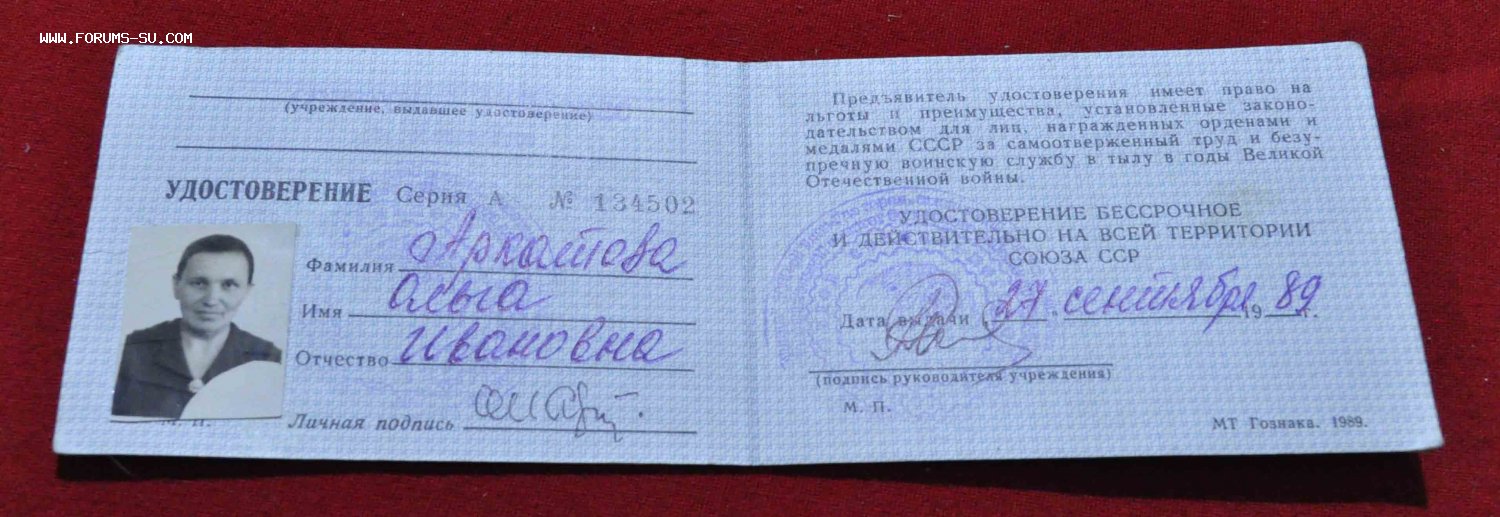 WWW.FORUMS-SU.COM
(учреждение, выдавшее удостоверение)
УДОСТОВЕРЕНИЕ Серия А № 134502
Фамилия Аркатова
Имя Ольга
Отчество Ивановна
М. П.
Личная подпись
Предъявитель удостоверения имеет право на
льготы и преимущества, установленные законо-
дательством для лиц, награжденных орденами и
медалями СССР за самоотверженный труд и безу-
пречную воинскую службу в тылу в годы Великой
Отечественной войны.
УДОСТОВЕРЕНИЕ БЕССРОЧНОЕ
И ДЕЙСТВИТЕЛЬНО НА ВСЕЙ ТЕРРИТОРИИ
СОЮЗА ССР
Дата выдачи „27" сентября 1989 г.
(подпись руководителя учреждения)
М. П.
МТ Гознака. 1989.